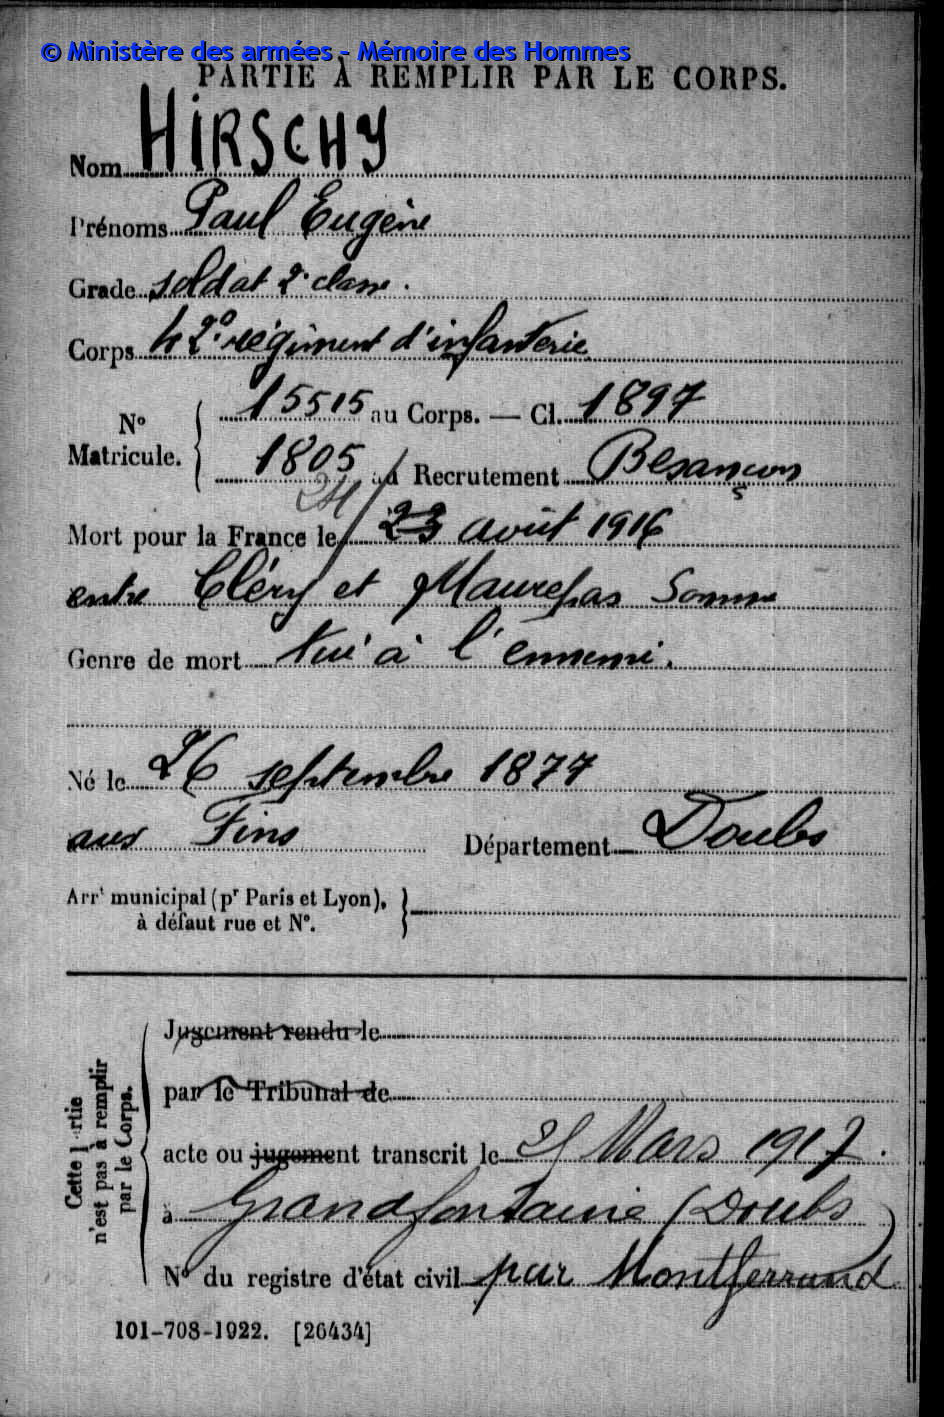 © Ministère des armées - Mémoire des Hommes
PARTIE À REMPLIR PAR LE CORPS.
Nom HIRSCHY
Prénoms Paul Eugène
Grade soldat 2e classe.
Corps 42e régiment d'infanterie
No Matricule. { 15515 au Corps. — Cl. 1897
1805 au Recrutement Besançon
24
Mort pour la France le 23 août 1916
entre Cléry et Maurepas Somme
Genre de mort tué à l'ennemi.
Né le 26 septembre 1877
aux Fins Département Doubs
Arrt municipal (pr Paris et Lyon), }
à défaut rue et No.
Cette partie
n'est pas à remplir
par le Corps.
Jugement rendu le
par le Tribunal de
acte ou jugement transcrit le Mars 1917.
à Grandfontaine (Doubs)
No du registre d'état civil par Montferrand
101-708-1922. [26434]